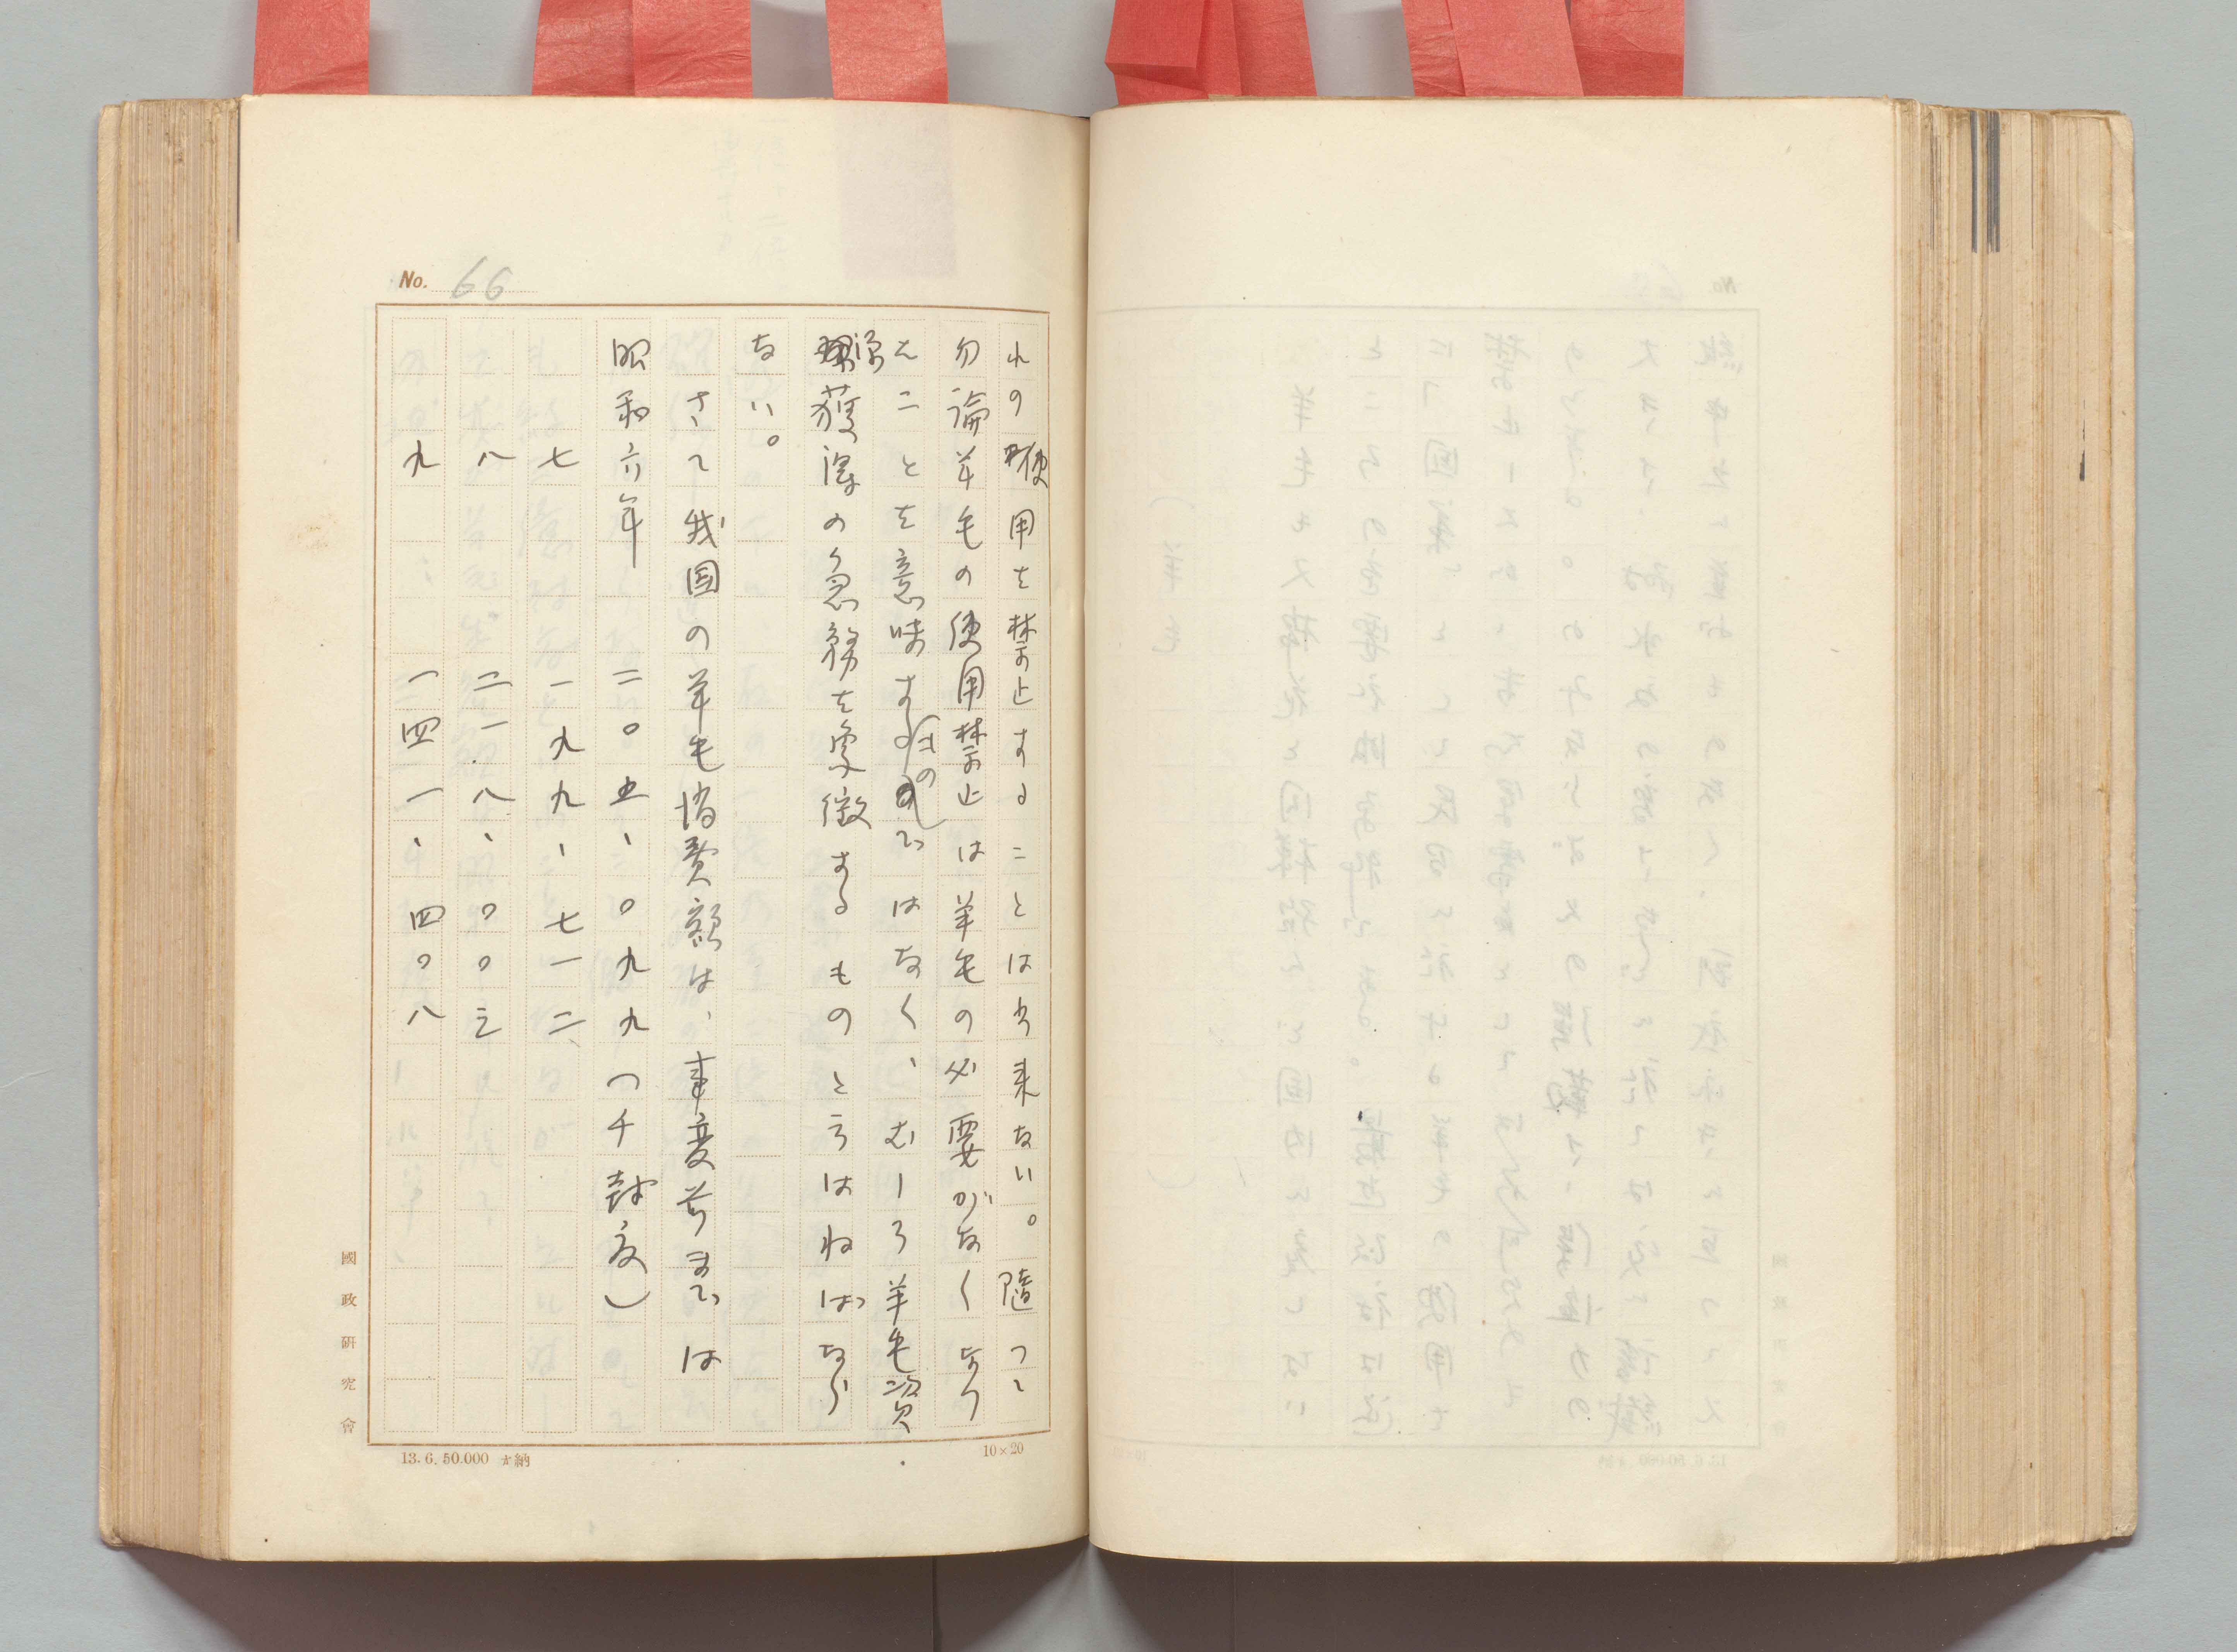 No. 66
れの使用を禁止することは出来ない。隨つて
勿論羊毛の使用禁止は羊毛の必要がなくなつ
たことを意味するものではなく、むしろ羊毛資
源獲得の急務を象徴するものと云はねばなら
ない。
さて我国の羊毛消費額は、事変前までは
昭和六年 二〇五、〇九九（千封度）
七 一九九、七一二
八 二一八、〇〇三
九 一四一、四〇八
國政研究會
13.6.50.000 納
10×20